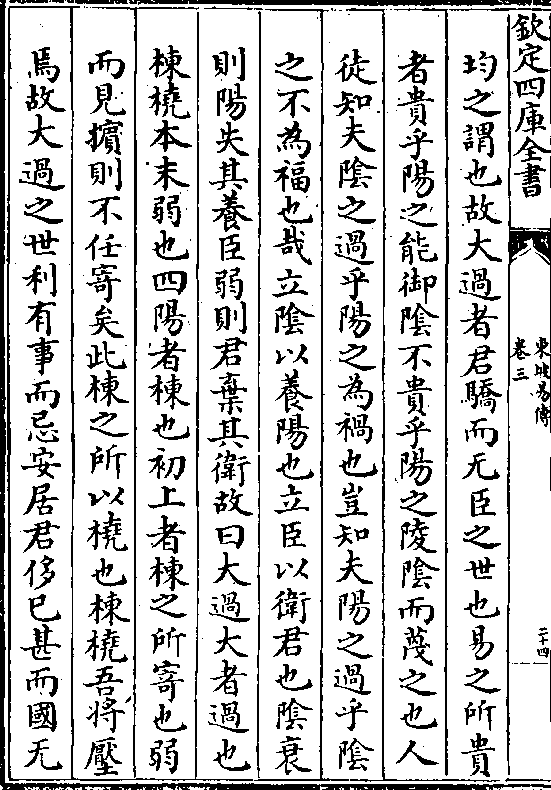 欽定四庫全書
東坡易傳
卷三
二十四
均之謂也故大過者君驕而无臣之世也易之所貴
者貴乎陽之能御陰不貴乎陽之陵陰而蔑之也人
徒知夫陰之過乎陽之為禍也豈知夫陽之過乎陰
之不為福也哉立陰以養陽也立臣以衛君也陰衰
則陽失其養臣弱則君棄其衛故曰大過大者過也
棟橈本末弱也四陽者棟也初上者棟之所寄也弱
而見擯則不任寄矣此棟之所以橈也棟橈吾將壓
焉故大過之世利有事而忌安居君侈已甚而國无